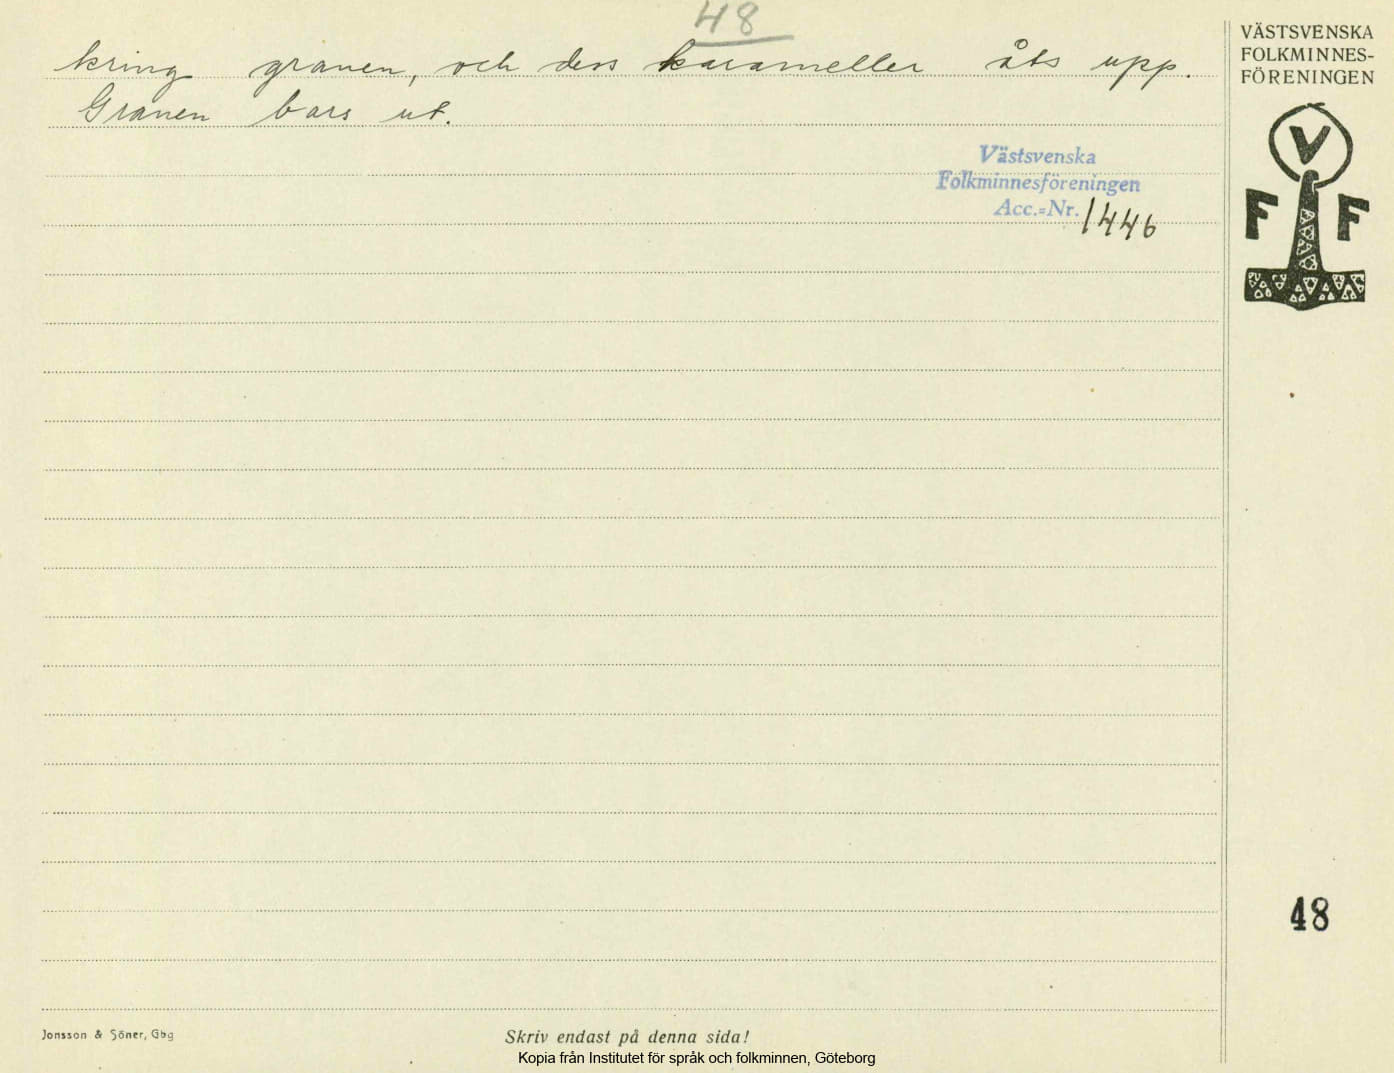 48
kring granen, och dess karameller åts upp.
Granen bars ut.
Västsvenska
Folkminnesföreningen
Acc.=Nr. 1446
VÄSTSVENSKA
FOLKMINNES-
FÖRENINGEN
V
F F
48
Jonsson & Söner, Gbg
Skriv endast på denna sida!
Kopia från Institutet för språk och folkminnen, Göteborg